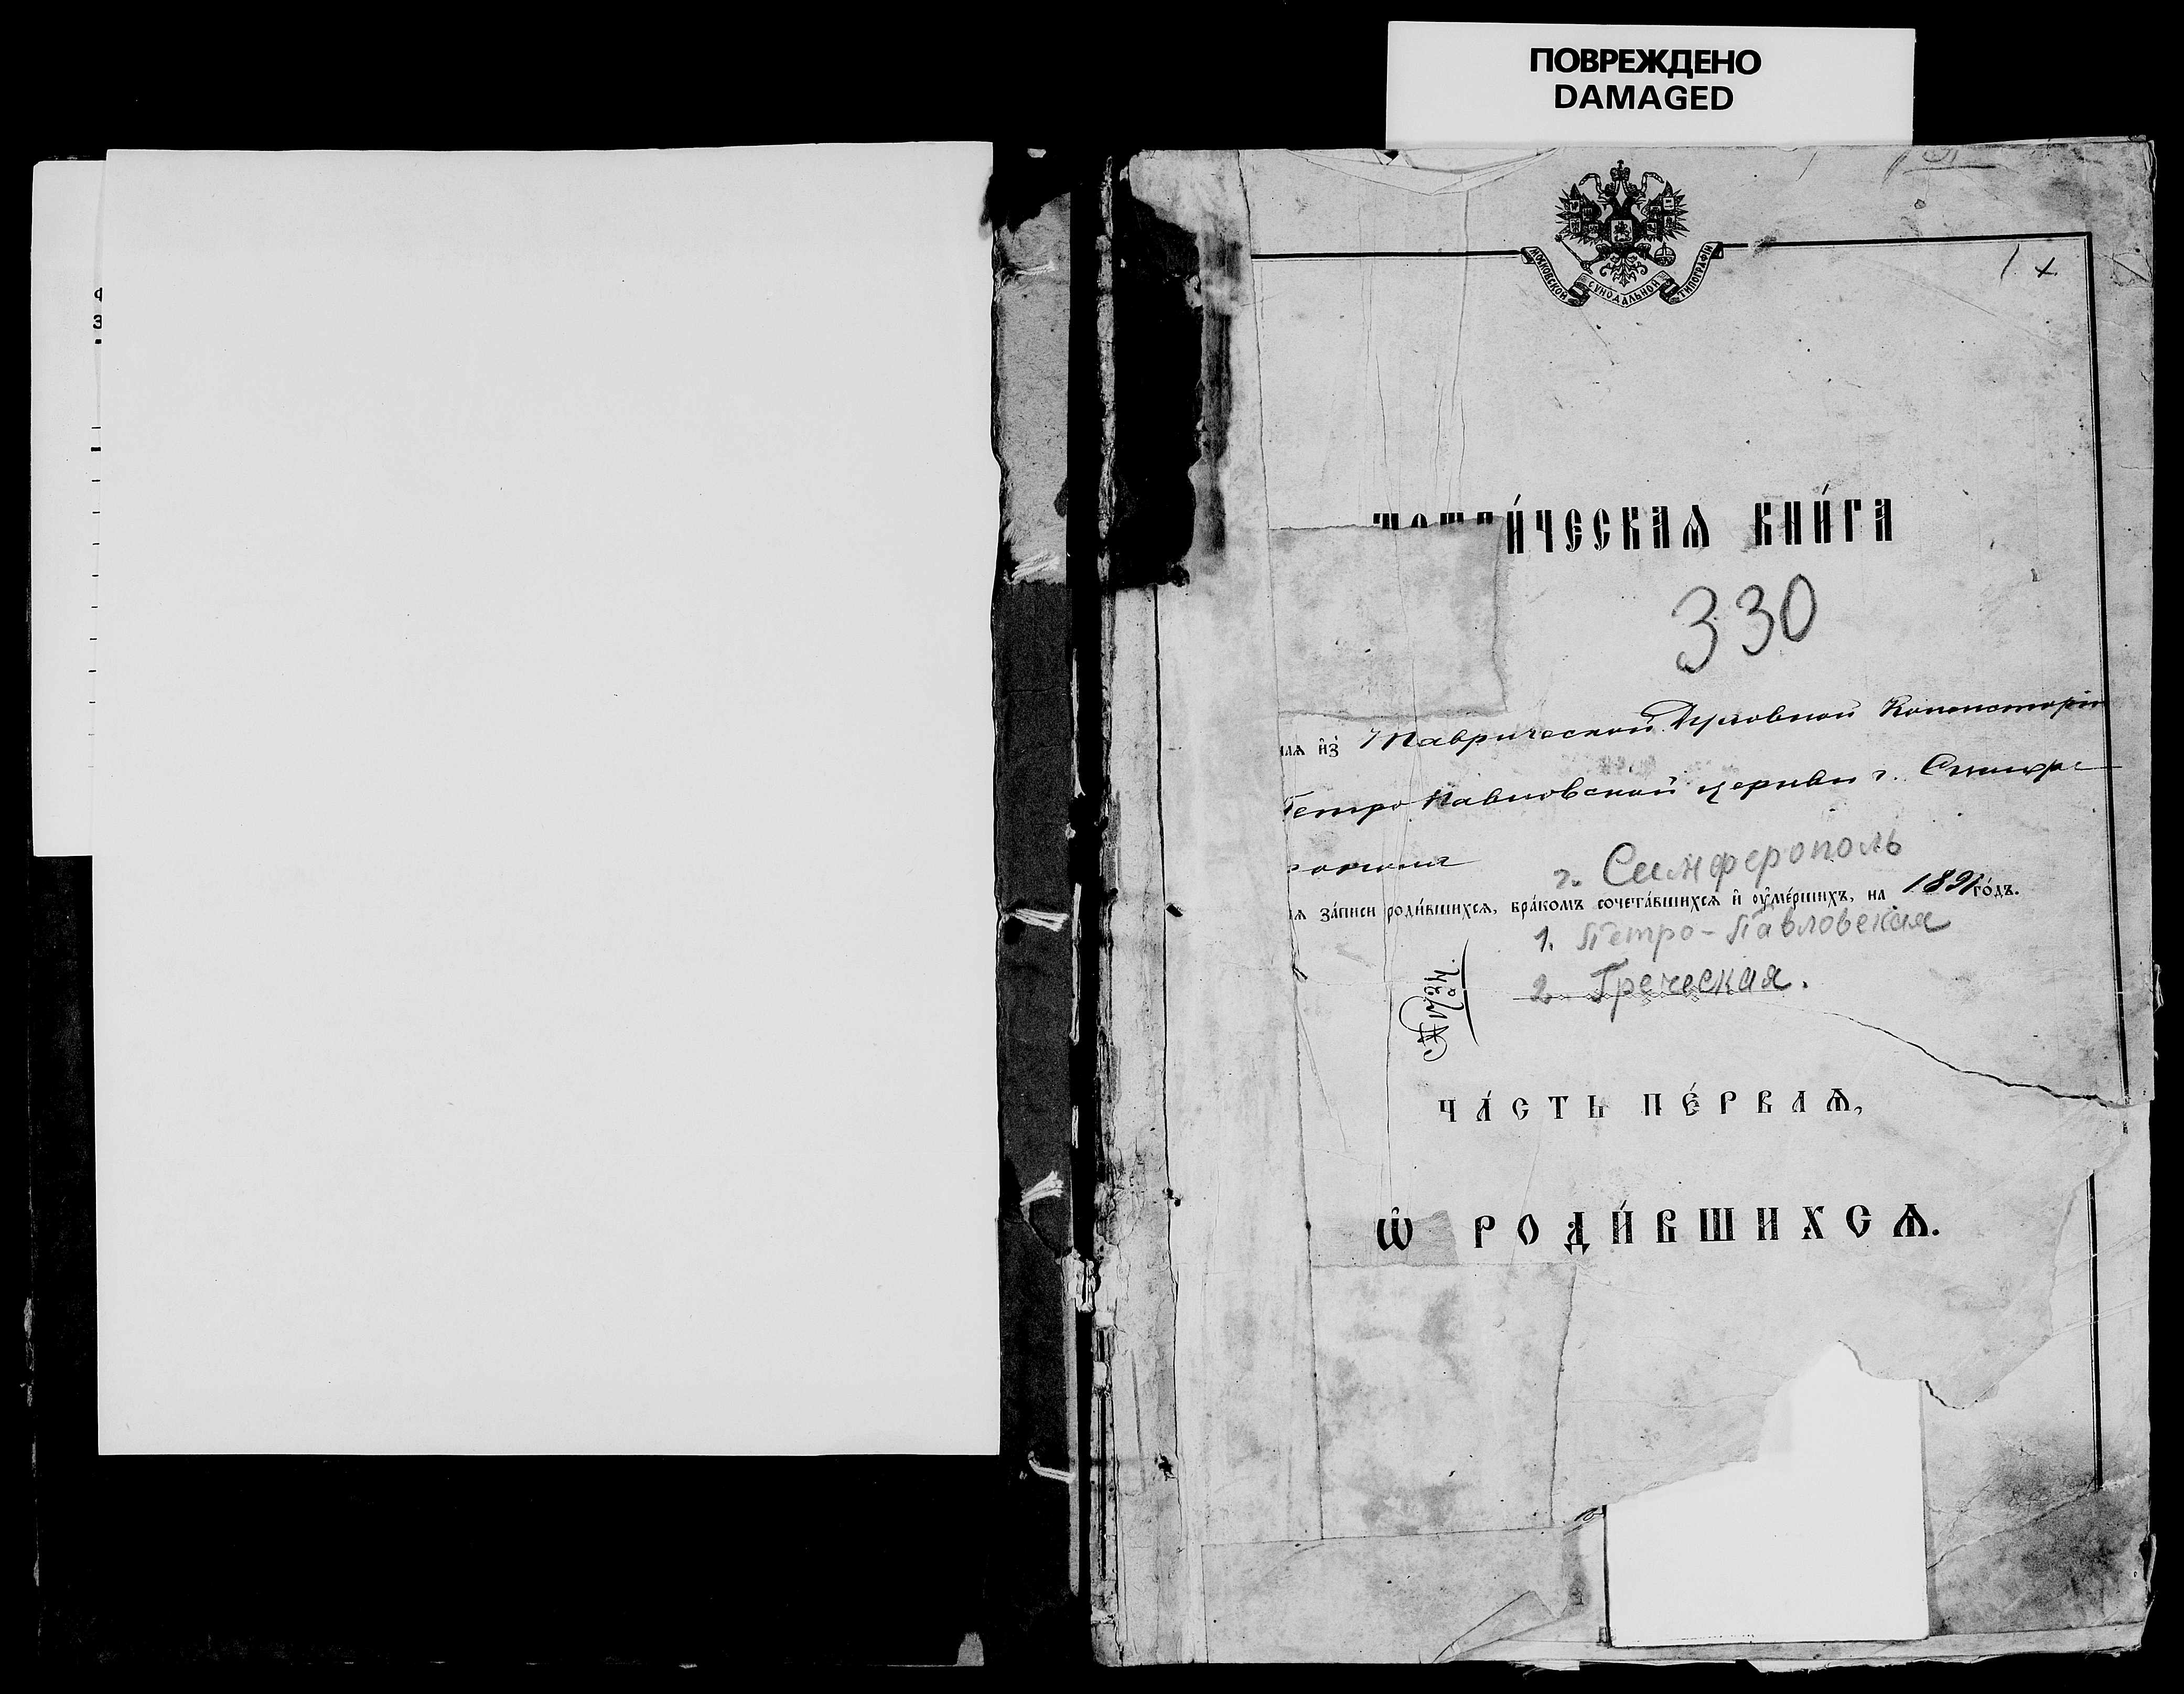 ПОВРЕЖДЕНО
DAMAGED
МОСКОВСКОЙ СУНОДАЛЬНОЙ ТИПОГРАФІИ
1
и́ческаѧ кни́га
330
аѧ и҆з̾ Таврической Духовной Консисторіи
Петро Павловской церкви г. Симфе
рополя
г. Симферополь
ѧ за́писи роди́вшихсѧ, бра́комъ сочета́вшихсѧ и҆ ᲂу҆ме́ршихъ, на 1891 го́дъ.
1. Петро-Павловская
2. Греческая.
ча́сть пе́рваѧ,
ѡ҆ роди́вшихсѧ.